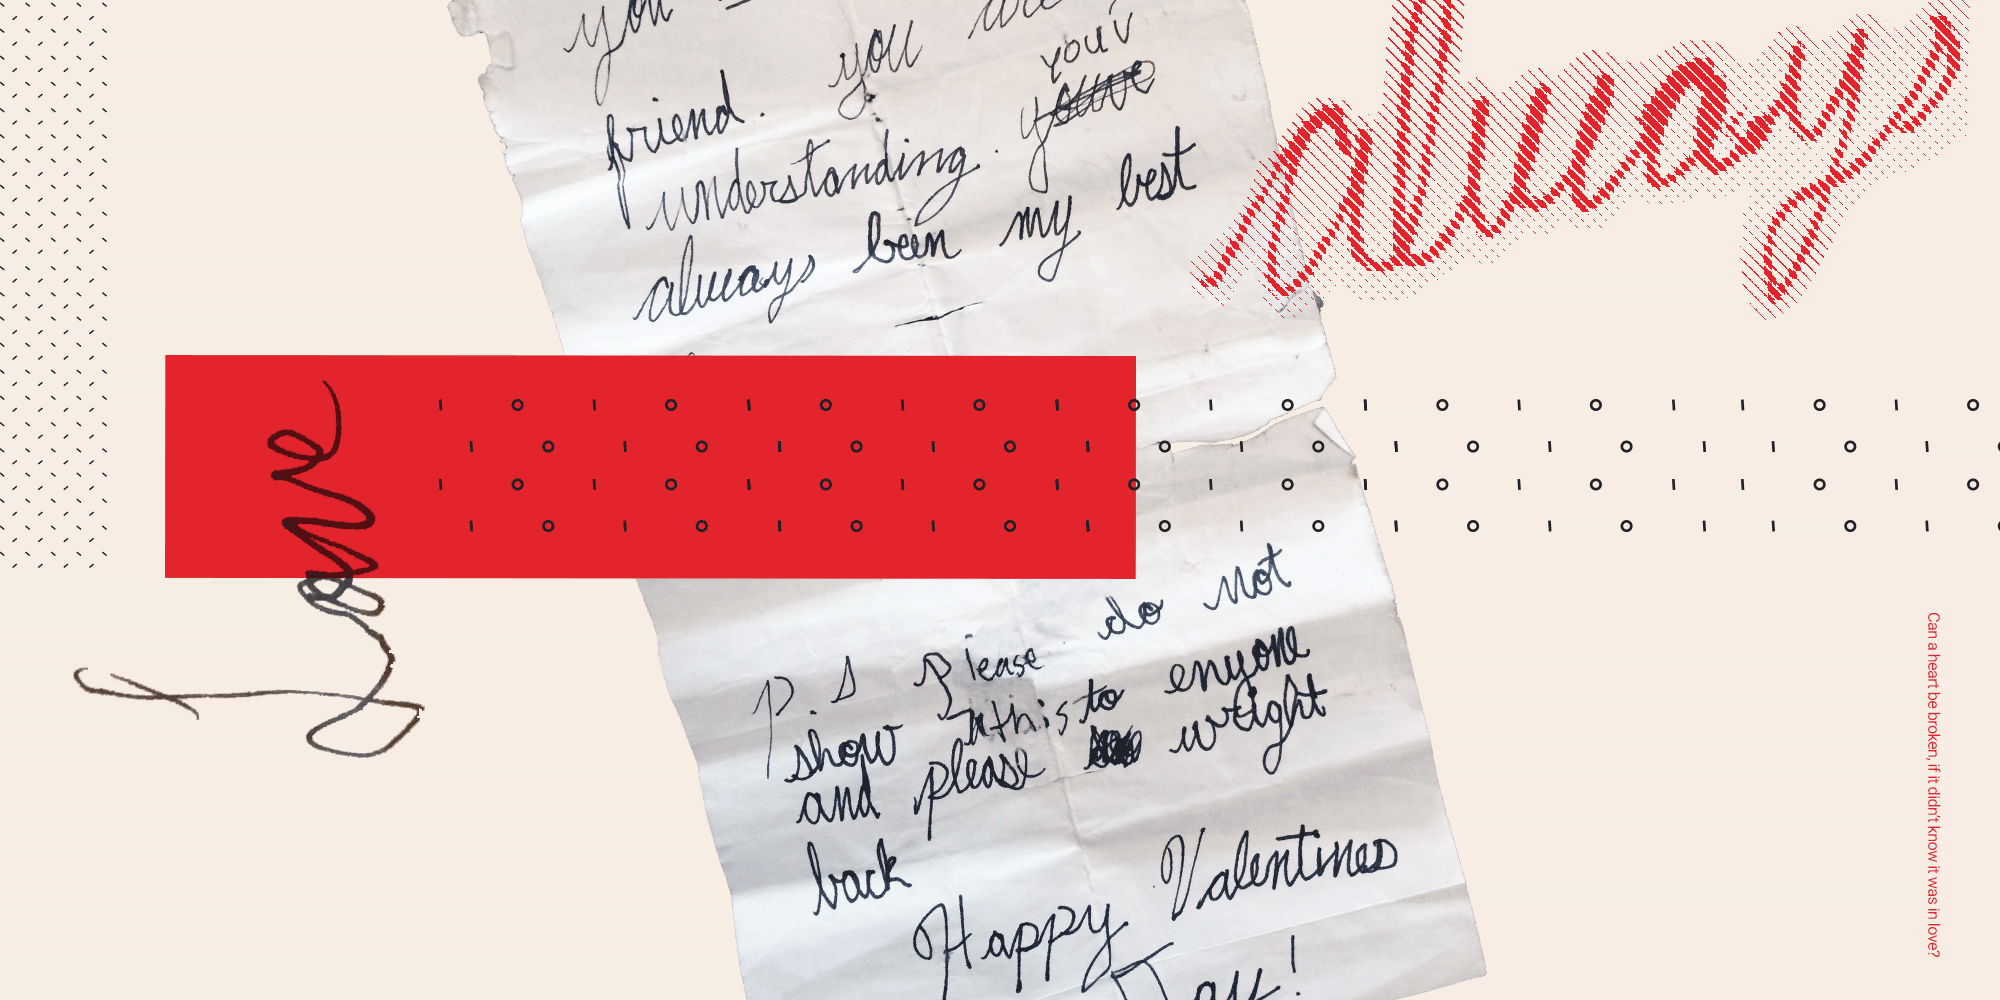 you
friend. you are
understanding. youv
always been my best
P.S Please do not
show this to enyone
and please wright
back
Happy Valentines
Day!
always
Love
Can a heart be broken, if it didn't know it was in love?